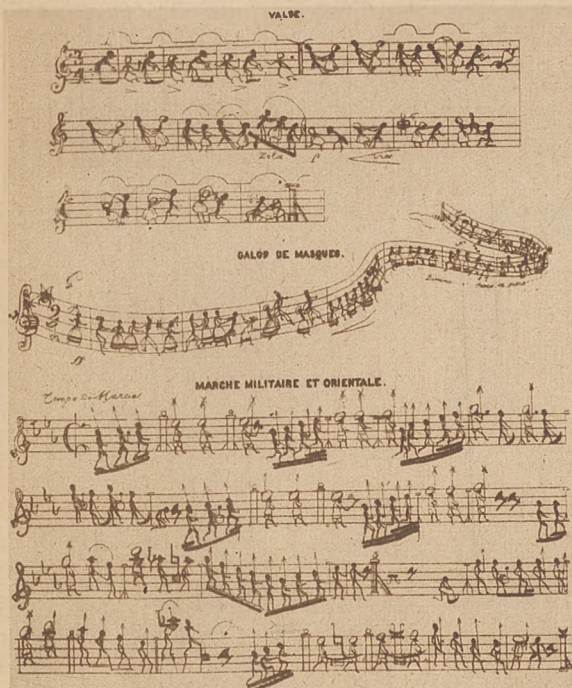 VALSE.
GALOP DE MASQUES.
MARCHE MILITAIRE ET ORIENTALE.
Tempo di Marcia